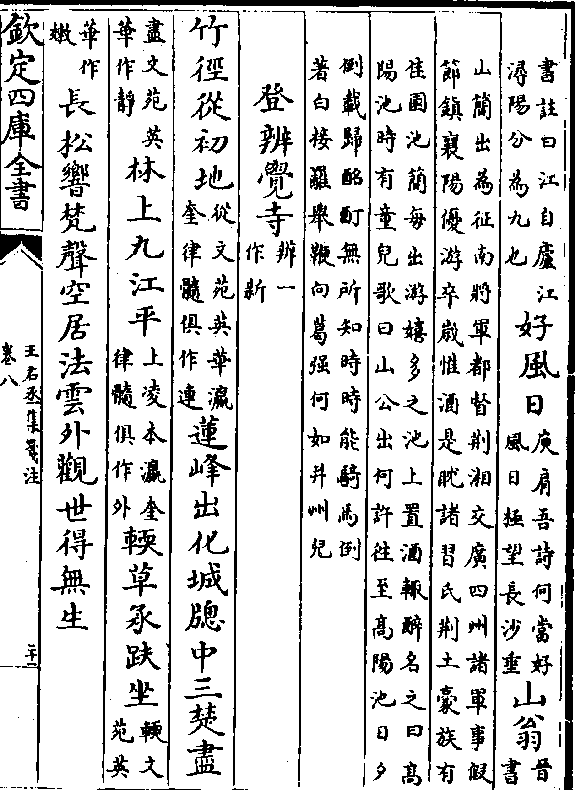 書註曰江自廬江潯陽分為九也好風日庾肩吾詩何當好風日極望長沙垂山翁晉書
山簡出為征南將軍都督荆湘交廣四州諸軍事假
節鎮襄陽優游卒歲惟酒是躭諸習氏荆土豪族有
佳園池簡每出游嬉多之池上置酒輒醉名之曰高
陽池時有童兒歌曰山公出何許往至高陽池日夕
倒載歸酩酊無所知時時能騎馬倒
著白接䍦舉鞭向葛强何如并州兒
登辨覺寺辨一作新
竹徑從初地從文苑英華瀛奎律髓俱作連蓮峰出化城牕中三楚盡
盡文苑英華作靜林上九江平上凌本瀛奎律髓俱作外輭草承趺坐輭文苑英
華作嫩長松響梵聲空居法雲外觀世得無生
欽定四庫全書
王右丞集箋注
卷八